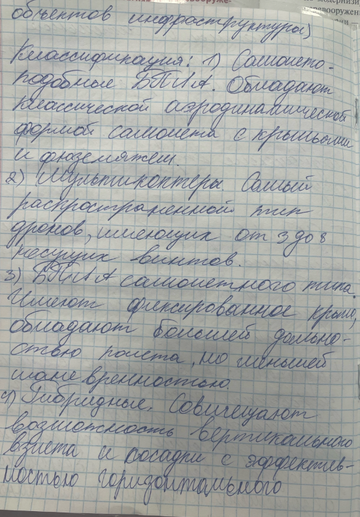 объектов инфраструктуры)
Классификация: 1) Самолето-
подобные БПЛА. Обладают
классической аэродинамической
формой самолета с крыльями
и фюзеляжем.
2) Мультикоптеры Самый
распространенный тип
дронов, имеющих от 3 до 8
несущих винтов.
3) БПЛА самолетного типа
Имеют фиксированное крыло,
обладают большей дально-
стью полета, но меньшей
маневренностью
4) Гибридные. Совмещают
возможность вертикального
взлета и посадки с эффектив-
ностью горизонтального